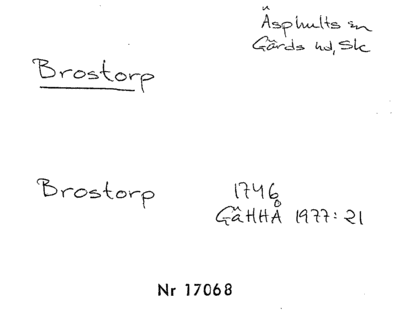 Äsphults sn
Gärds hd, Sk
Brostorp
Brostorp 1746
GäHHÅ 1977:21
Nr 17068